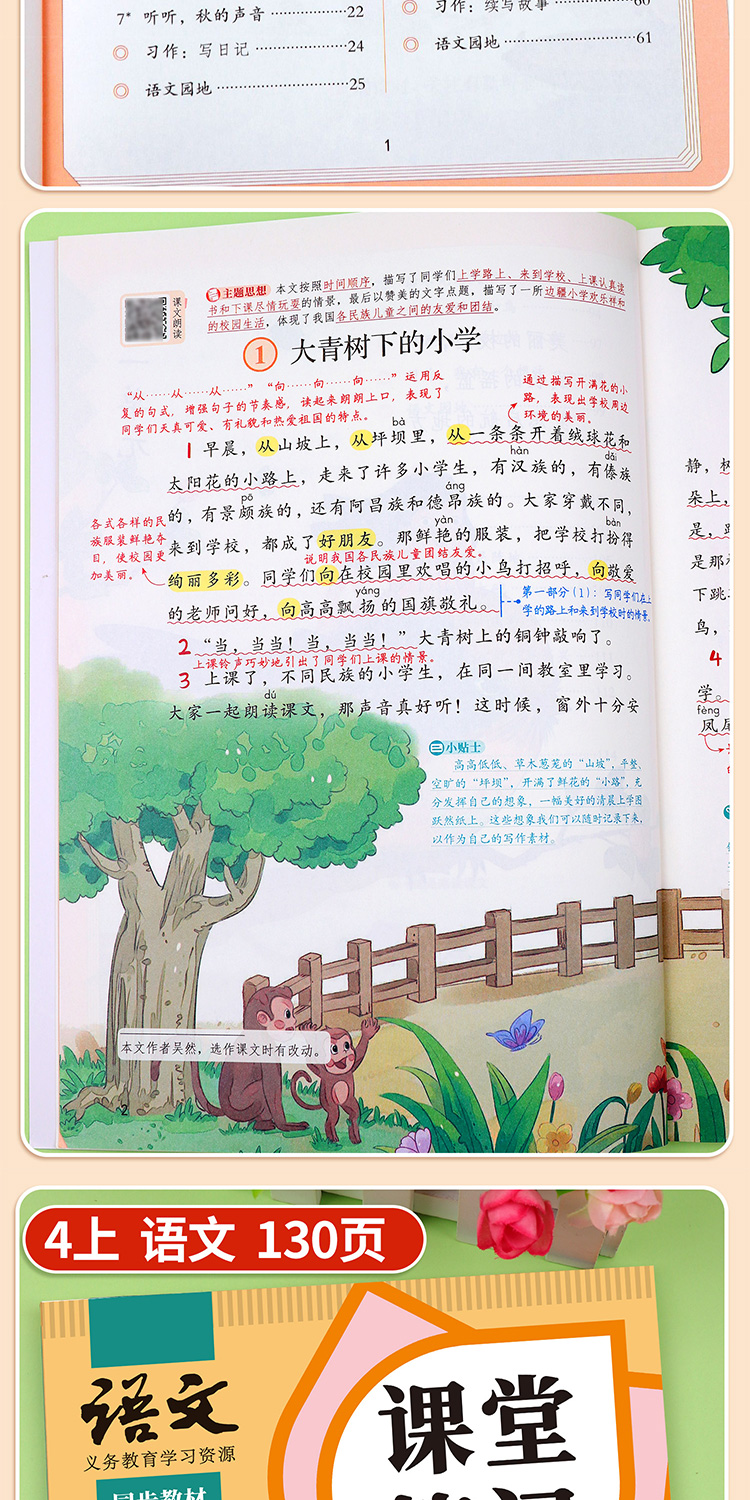 7* 听听，秋的声音 22
习作：写日记 24
语文园地 25
习作：续写故事 60
语文园地 61
1
课文朗读
主题思想 本文按照时间顺序，描写了同学们上学路上、来到学校、上课认真读
书和下课尽情玩耍的情景，最后以赞美的文字点题，描写了一所边疆小学欢乐祥和
的校园生活，体现了我国各民族儿童之间的友爱和团结。
1 大青树下的小学
“从……从……从……”“向……向……向……”运用反
复的句式，增强句子的节奏感，读起来朗朗上口，表现了
同学们天真可爱、有礼貌和热爱祖国的特点。
通过描写开满花的小
路，表现出学校周边
环境的美丽。
bà
1 早晨，从山坡上，从坪坝里，从一条条开着绒球花和
hàn dǎi
太阳花的小路上，走来了许多小学生，有汉族的，有傣族
pō áng
的，有景颇族的，还有阿昌族和德昂族的。大家穿戴不同，
yàn bàn
来到学校，都成了好朋友。那鲜艳的服装，把学校打扮得
说明我国各民族儿童团结友爱。
各式各样的民
族服装鲜艳夺
目，使校园更
加美丽。
绚丽多彩。同学们向在校园里欢唱的小鸟打招呼，向敬爱
yáng
的老师问好，向高高飘扬的国旗敬礼。
第一部分（1）：写同学们在上
学的路上和来到学校时的情景。
2 “当，当当！当，当当！”大青树上的铜钟敲响了。
上课铃声巧妙地引出了同学们上课的情景。
3 上课了，不同民族的小学生，在同一间教室里学习。
dú
大家一起朗读课文，那声音真好听！这时候，窗外十分安
小贴士
高高低低、草木葱茏的“山坡”，平整、
空旷的“坪坝”，开满了鲜花的“小路”，充
分发挥自己的想象，一幅美好的清晨上学图
跃然纸上。这些想象我们可以随时记录下来，
以作为自己的写作素材。
本文作者吴然，选作课文时有改动。
2
静，
朵上，
是，
是那
下跳
鸟，
4
学。
fèng
凤
4上 语文 130页
语文
义务教育学习资源
同步教材
课堂
笔记